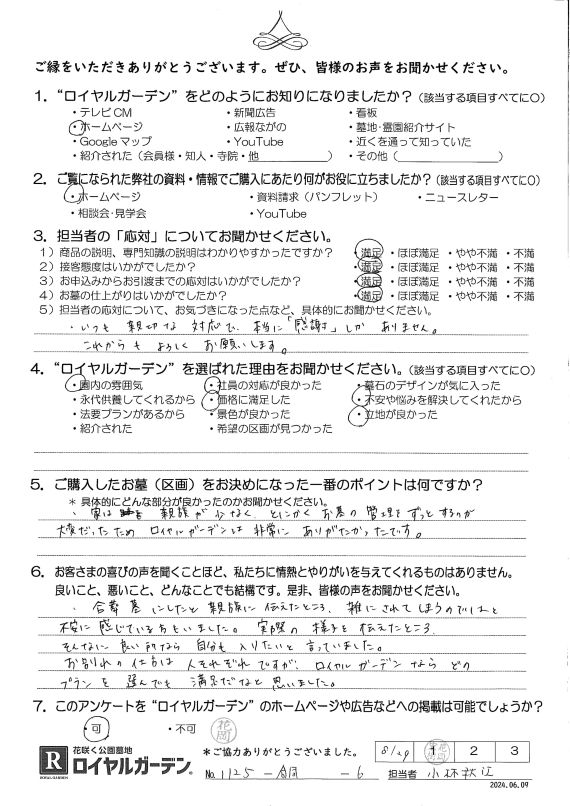 ご縁をいただきありがとうございます。ぜひ、皆様のお声をお聞かせください。
1. “ロイヤルガーデン”をどのようにお知りになりましたか？(該当する項目すべてに○)
・テレビCM ・新聞広告 ・看板
・ホームページ ・広報ながの ・墓地・霊園紹介サイト
・Googleマップ ・YouTube ・近くを通って知っていた
・紹介された（会員様・知人・寺院・他　　　　） ・その他（　　　　）
2. ご覧になられた弊社の資料・情報でご購入にあたり何がお役に立ちましたか？(該当する項目すべてに○)
・ホームページ ・資料請求（パンフレット） ・ニュースレター
・相談会・見学会 ・YouTube
3. 担当者の「応対」についてお聞かせください。
1）商品の説明、専門知識の説明はわかりやすかったですか？ ・満足 ・ほぼ満足 ・やや不満 ・不満
2）接客態度はいかがでしたか？ ・満足 ・ほぼ満足 ・やや不満 ・不満
3）お申込みからお引渡までの応対はいかがでしたか？ ・満足 ・ほぼ満足 ・やや不満 ・不満
4）お墓の仕上がりはいかがでしたか？ ・満足 ・ほぼ満足 ・やや不満 ・不満
5）担当者の応対について、お気づきになった点など、具体的にお聞かせください。
・いつも親切な対応で、本当に「感謝」しかありません。
これからもよろしくお願いします。
4. “ロイヤルガーデン”を選ばれた理由をお聞かせください。(該当する項目すべてに○)
・園内の雰囲気 ・社員の対応が良かった ・墓石のデザインが気に入った
・永代供養してくれるから ・価格に満足した ・不安や悩みを解決してくれたから
・法要プランがあるから ・景色が良かった ・立地が良かった
・紹介された ・希望の区画が見つかった
5. ご購入したお墓（区画）をお決めになった一番のポイントは何ですか？
＊具体的にどんな部分が良かったのかお聞かせください。
・家は親族が少なく、とにかくお墓の管理をずっとするのが
大変だったためロイヤルガーデンは非常にありがたかったです。
6. お客さまの喜びの声を聞くことほど、私たちに情熱とやりがいを与えてくれるものはありません。
良いこと、悪いこと、どんなことでも結構です。是非、皆様の声をお聞かせください。
・合葬墓にしたと親族に伝えたところ、雑にされてしまうのではと
不安に感じている方もいました。実際の様子を伝えたところ、
そんなに良い所なら自分も入りたいと言っていました。
お別れの仕方は人それぞれですが、ロイヤルガーデンならどの
プランを選んでも満足だなと思いました。
7. このアンケートを“ロイヤルガーデン”のホームページや広告などへの掲載は可能でしょうか？
・可 ・不可 花岡
R
ROYAL GARDEN
花咲く公園墓地
ロイヤルガーデン®
＊ご協力ありがとうございました。
8/29 1 2 3
No. 1125-合同-6 担当者 小林秋江
2024.06.09